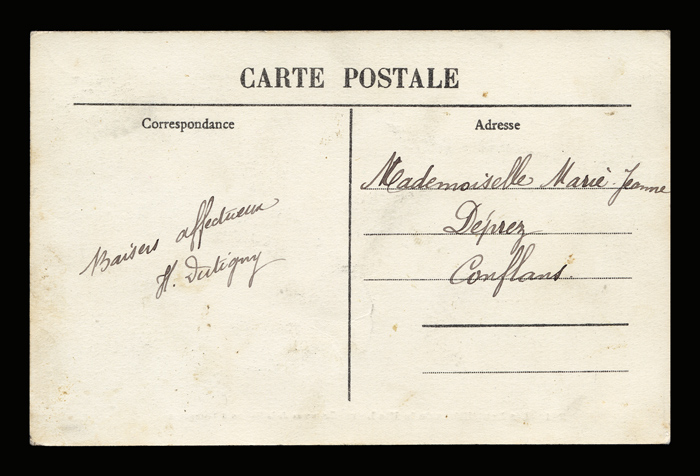 CARTE POSTALE
Correspondance
Baisers affectueux
H. Dutigny
Adresse
Mademoiselle Marie-Jeanne
Déprez
Conflans.